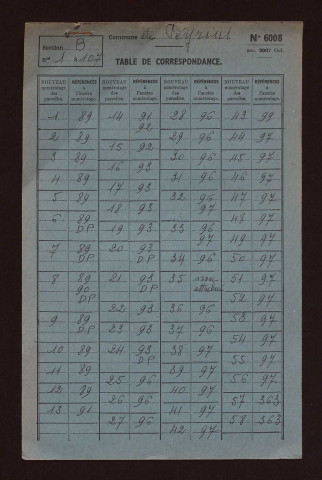 Commune de Peyrins
N° 6008
Section B
N° 1 à 107
TABLE DE CORRESPONDANCE.
NOUVEAU numérotage des parcelles. RÉFÉRENCES à l'ancien numérotage. NOUVEAU numérotage des parcelles. RÉFÉRENCES à l'ancien numérotage. NOUVEAU numérotage des parcelles. RÉFÉRENCES à l'ancien numérotage. NOUVEAU numérotage des parcelles. RÉFÉRENCES à l'ancien numérotage.
1 89 14 91 28 96 43 99
92
2 89 15 92 29 96 44 97
3 89 16 93 30 96 45 97
4 89 17 93 31 96 46 97
5 89 18 93 32 96 47 97
97
6 89 19 93 33 96 48 97
DP 97
7 89 20 93 34 96 49 97
DP DP 50 97
8 89 21 93 35 non 51 97
90 DP attribué
DP 52 97
9 89 22 93 36 96 53 97
DP 23 93 37 96 54 97
10 89 24 93 38 97 55 97
DP
11 89 25 96 39 97 56 97
12 89 26 96 40 97 57 363
13 91 27 96 41 97 58 363
42 97